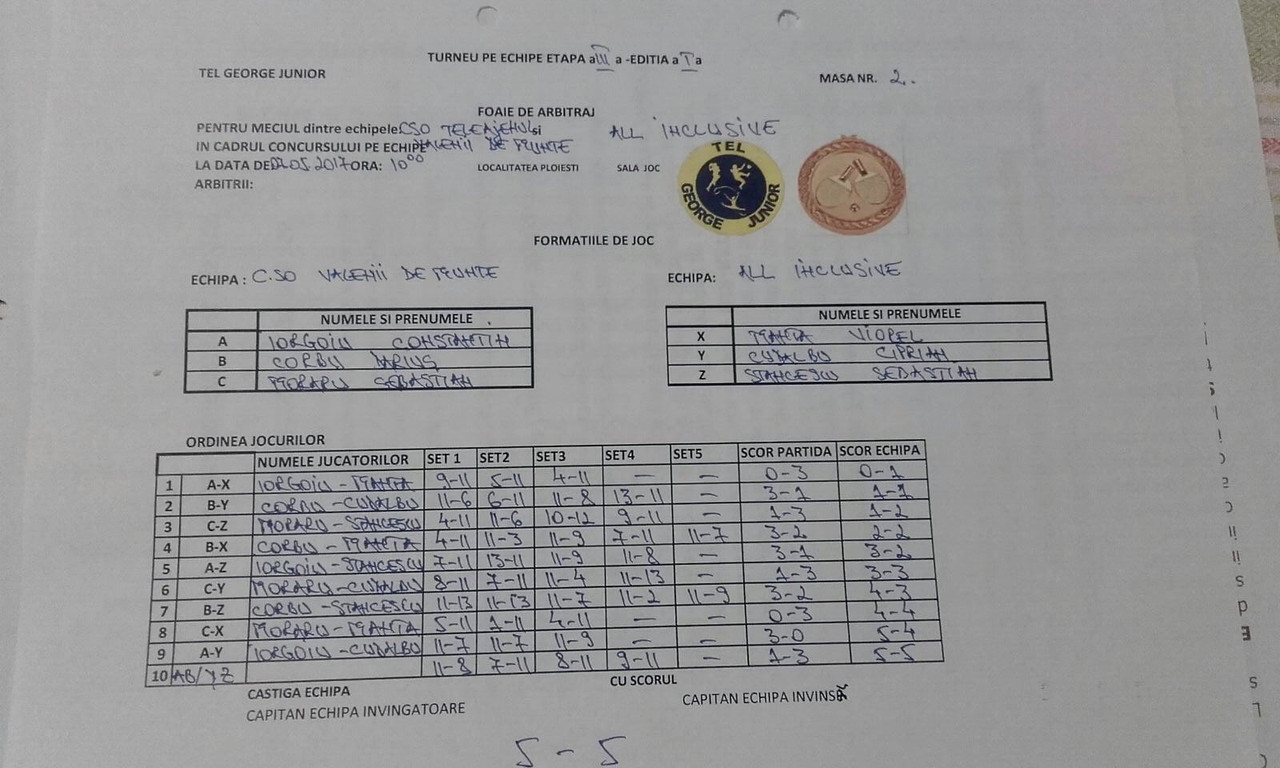 TURNEU PE ECHIPE ETAPA a III a -EDITIA a I a
TEL GEORGE JUNIOR
MASA NR. 2.
FOAIE DE ARBITRAJ
PENTRU MECIUL dintre echipele CSO TELEAJENUL si ALL INCLUSIVE
IN CADRUL CONCURSULUI PE ECHIPE VALENII DE MUNTE
LA DATA DE 05.2017 ORA: 10⁰⁰ LOCALITATEA PLOIESTI SALA JOC
ARBITRII:
TEL
GEORGE JUNIOR
FORMATIILE DE JOC
ECHIPA : C.SO VALENII DE MUNTE
ECHIPA: ALL INCLUSIVE
NUMELE SI PRENUMELE
A IORGOIU CONSTANTIN
B CORBU DARIUS
C MORARU SEBASTIAN
NUMELE SI PRENUMELE
X MANTA VIOREL
Y CUDALBU CIPRIAN
Z STANCESCU SEBASTIAN
ORDINEA JOCURILOR
NUMELE JUCATORILOR SET 1 SET2 SET3 SET4 SET5 SCOR PARTIDA SCOR ECHIPA
1 A-X IORGOIU - MANTA 9-11 5-11 4-11 — — 0-3 0-1
2 B-Y CORBU - CUDALBU 11-6 6-11 11-8 13-11 — 3-1 1-1
3 C-Z MORARU - STANCESCU 4-11 11-6 10-12 9-11 — 1-3 1-2
4 B-X CORBU - MANTA 4-11 11-3 11-9 7-11 11-7 3-2 2-2
5 A-Z IORGOIU - STANCESCU 7-11 13-11 11-9 11-8 — 3-1 3-2
6 C-Y MORARU - CUDALBU 8-11 7-11 11-4 11-13 — 1-3 3-3
7 B-Z CORBU - STANCESCU 11-13 11-13 11-7 11-2 11-9 3-2 4-3
8 C-X MORARU - MANTA 5-11 1-11 4-11 — — 0-3 4-4
9 A-Y IORGOIU - CUDALBU 11-7 11-7 11-9 — — 3-0 5-4
10 AB/YZ 11-8 7-11 8-11 9-11 — 1-3 5-5
CASTIGA ECHIPA CU SCORUL
CAPITAN ECHIPA INVINGATOARE CAPITAN ECHIPA INVINSĂ
5 - 5